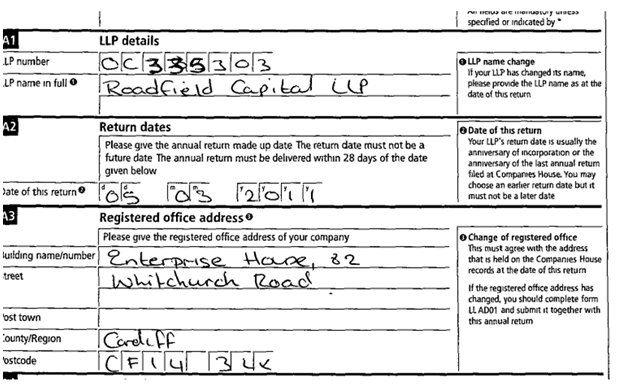 All fields are mandatory unless
specified or indicated by *
A1 LLP details
LLP number OC335303
LLP name in full ❶ Roadfield Capital LLP
❶ LLP name change
If your LLP has changed its name,
please provide the LLP name as at the
date of this return
A2 Return dates
Please give the annual return made up date The return date must not be a
future date The annual return must be delivered within 28 days of the date
given below
Date of this return ❷ d d 05 m m 03 y y y y 2011
❷ Date of this return
Your LLP's return date is usually the
anniversary of incorporation or the
anniversary of the last annual return
filed at Companies House. You may
choose an earlier return date but it
must not be a later date
A3 Registered office address ❸
Please give the registered office address of your company
Building name/number Enterprise House, 82
Street Whitchurch Road
Post town
County/Region Cardiff
Postcode CF14 3LX
❸ Change of registered office
This must agree with the address
that is held on the Companies House
records at the date of this return
If the registered office address has
changed, you should complete form
LL AD01 and submit it together with
this annual return